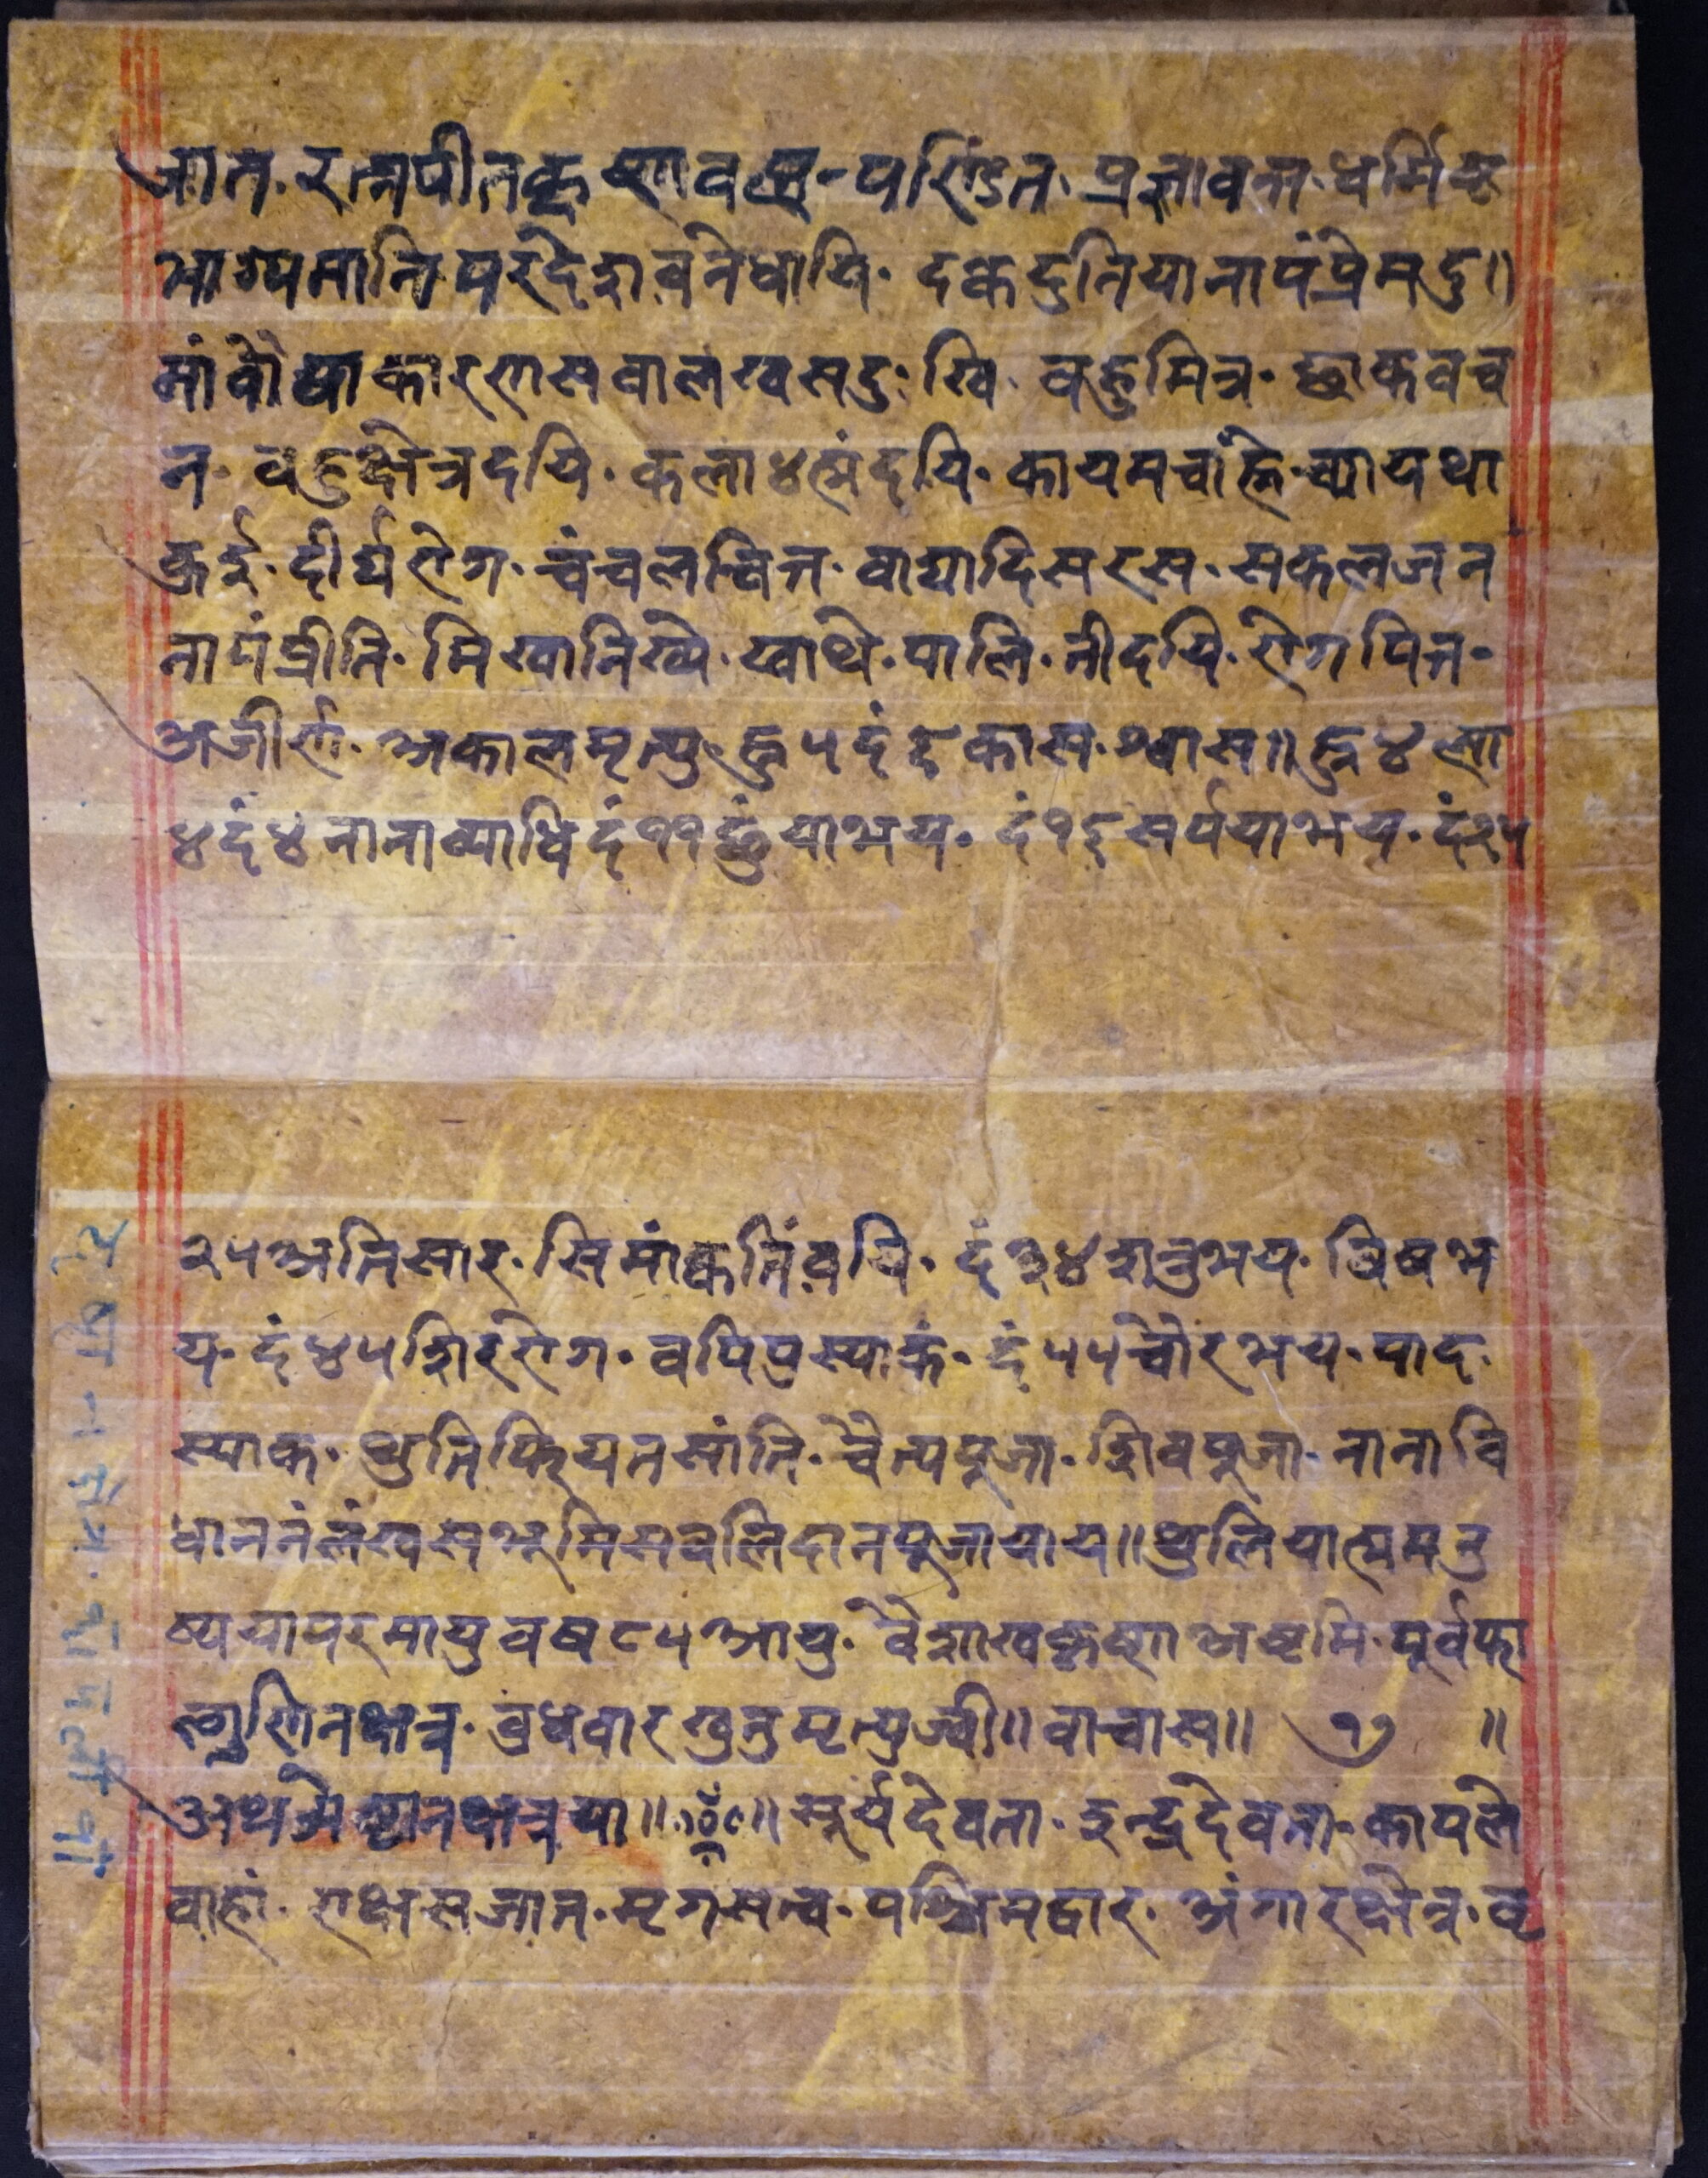 जात. रत्नपीतकृष्णवस्त्र - पण्डित. प्रज्ञावन्त. धर्मिष्ट
भाग्यमानि परदेशवनेधायि. दक्वदुनियानापंप्रेमदु॥
मांवौयाकारणसवालखसदुःखि. वहुमित्र. छाकवच
न. वहुक्षेत्रदयि. कला४त्मंदयि. कायमचांह्ने. च्यायथा
क्रूई. दीर्घरोग. चंचलचित्त. वाद्यादिसरस. सकलजन
नापंप्रीति. मिखानिख्ये. खाथे. पालि. नीदयि. रोगपित्त.
अजीर्ण. अकालमृत्यु. ह्नु५दं६कास. श्वास॥ ह्नु४ ला
४दं४नानाव्याधि दं११ छुंयाभय. दं१६ सर्पयाभय. दं२५
२५अतिसार. सिमांक्वतिंवयि. दं३४शत्रुभय. विषभ
य. दं४५शिररोग. वपिपुस्याकं. दं५५चोरभय. पाद.
स्याक. थुतिफियतसांति. चैत्यपूजा. शिवपूजा. नानावि
धाननंलंखसभूमिसवलिदानपूजायाय॥ थुलियात्मनु
ष्ययापरमायुवष८५आयु. वैशाखकृष्णअष्टमि. पूर्वफा
ल्गुणिनक्षत्र. वुधवारखुनुमृत्युज्वी॥ वाचास॥ १७ ॥
अथजेष्ठानक्षत्रया॥ ॥ सूर्यदेवता. इन्द्रदेवता. कापले
वाहां. राक्षसजात. मृगसत्व. पश्चिमद्वार. अंगारक्षेत्र. वृ